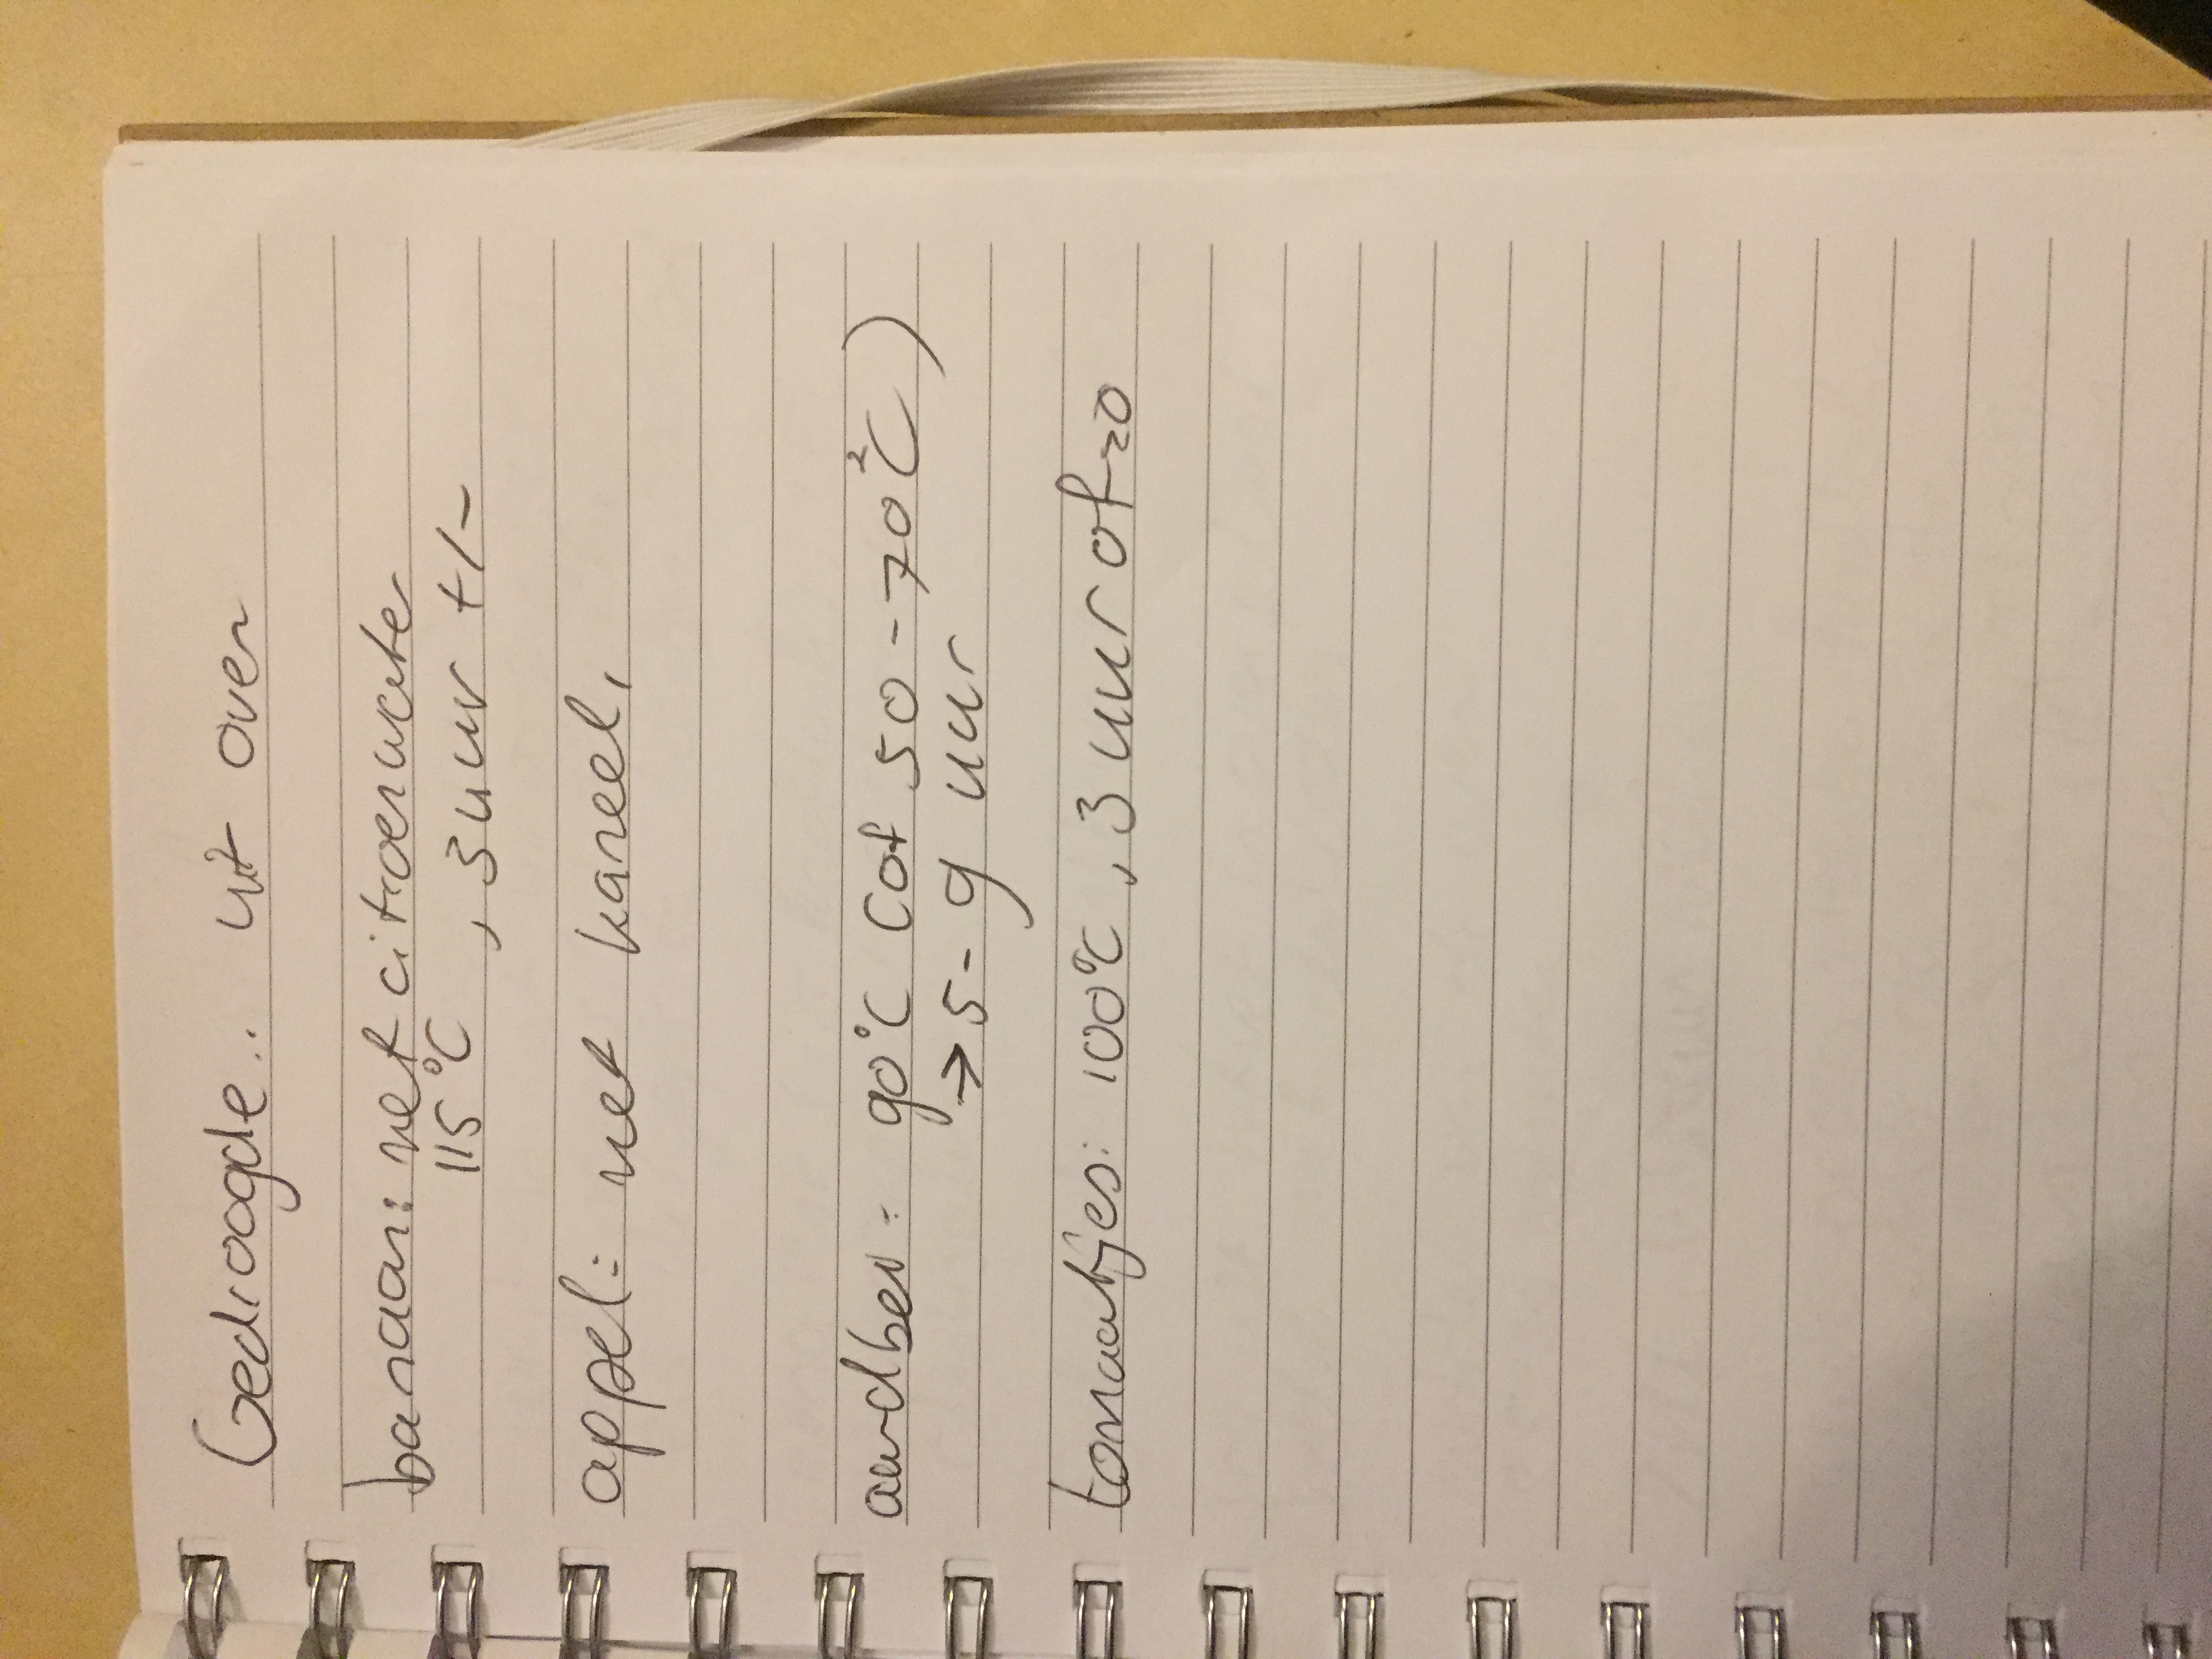 Gedroogde.. uit oven
banaan: met citroenwater
115°C, 3 uur +/-
appel: met kaneel,
aardbei: 90°C (of 50-70°C)
→ 5-9 uur
tomaatjes: 100°C, 3 uur ofzo